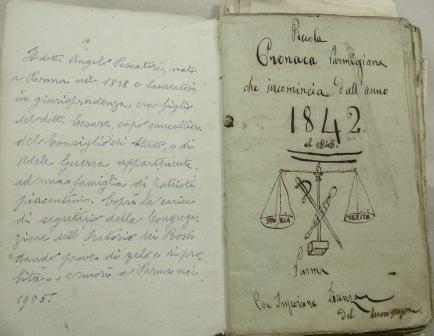 Il dott. Angelo Pescatori, nato
a Parma nel 1818 e laureatosi
in giurisprudenza, era figlio
del dott. Cesare, capo cancelliere
del Consiglio di Stato, e di
Adele Guerra appartenente
ad una famiglia di patrioti
piacentini. Coprì la carica
di segretario della Congrega-
zione dell'Oratorio dei Rossi
"dando prove di zelo e di pro-
bità", e morì a Parma nel
1905.
Piccola
Cronaca Parmigiana
che incomincia dall'anno
1842.
al 1848.
STORIA
VERITÀ
Parma
Con Superiore Licenza
del